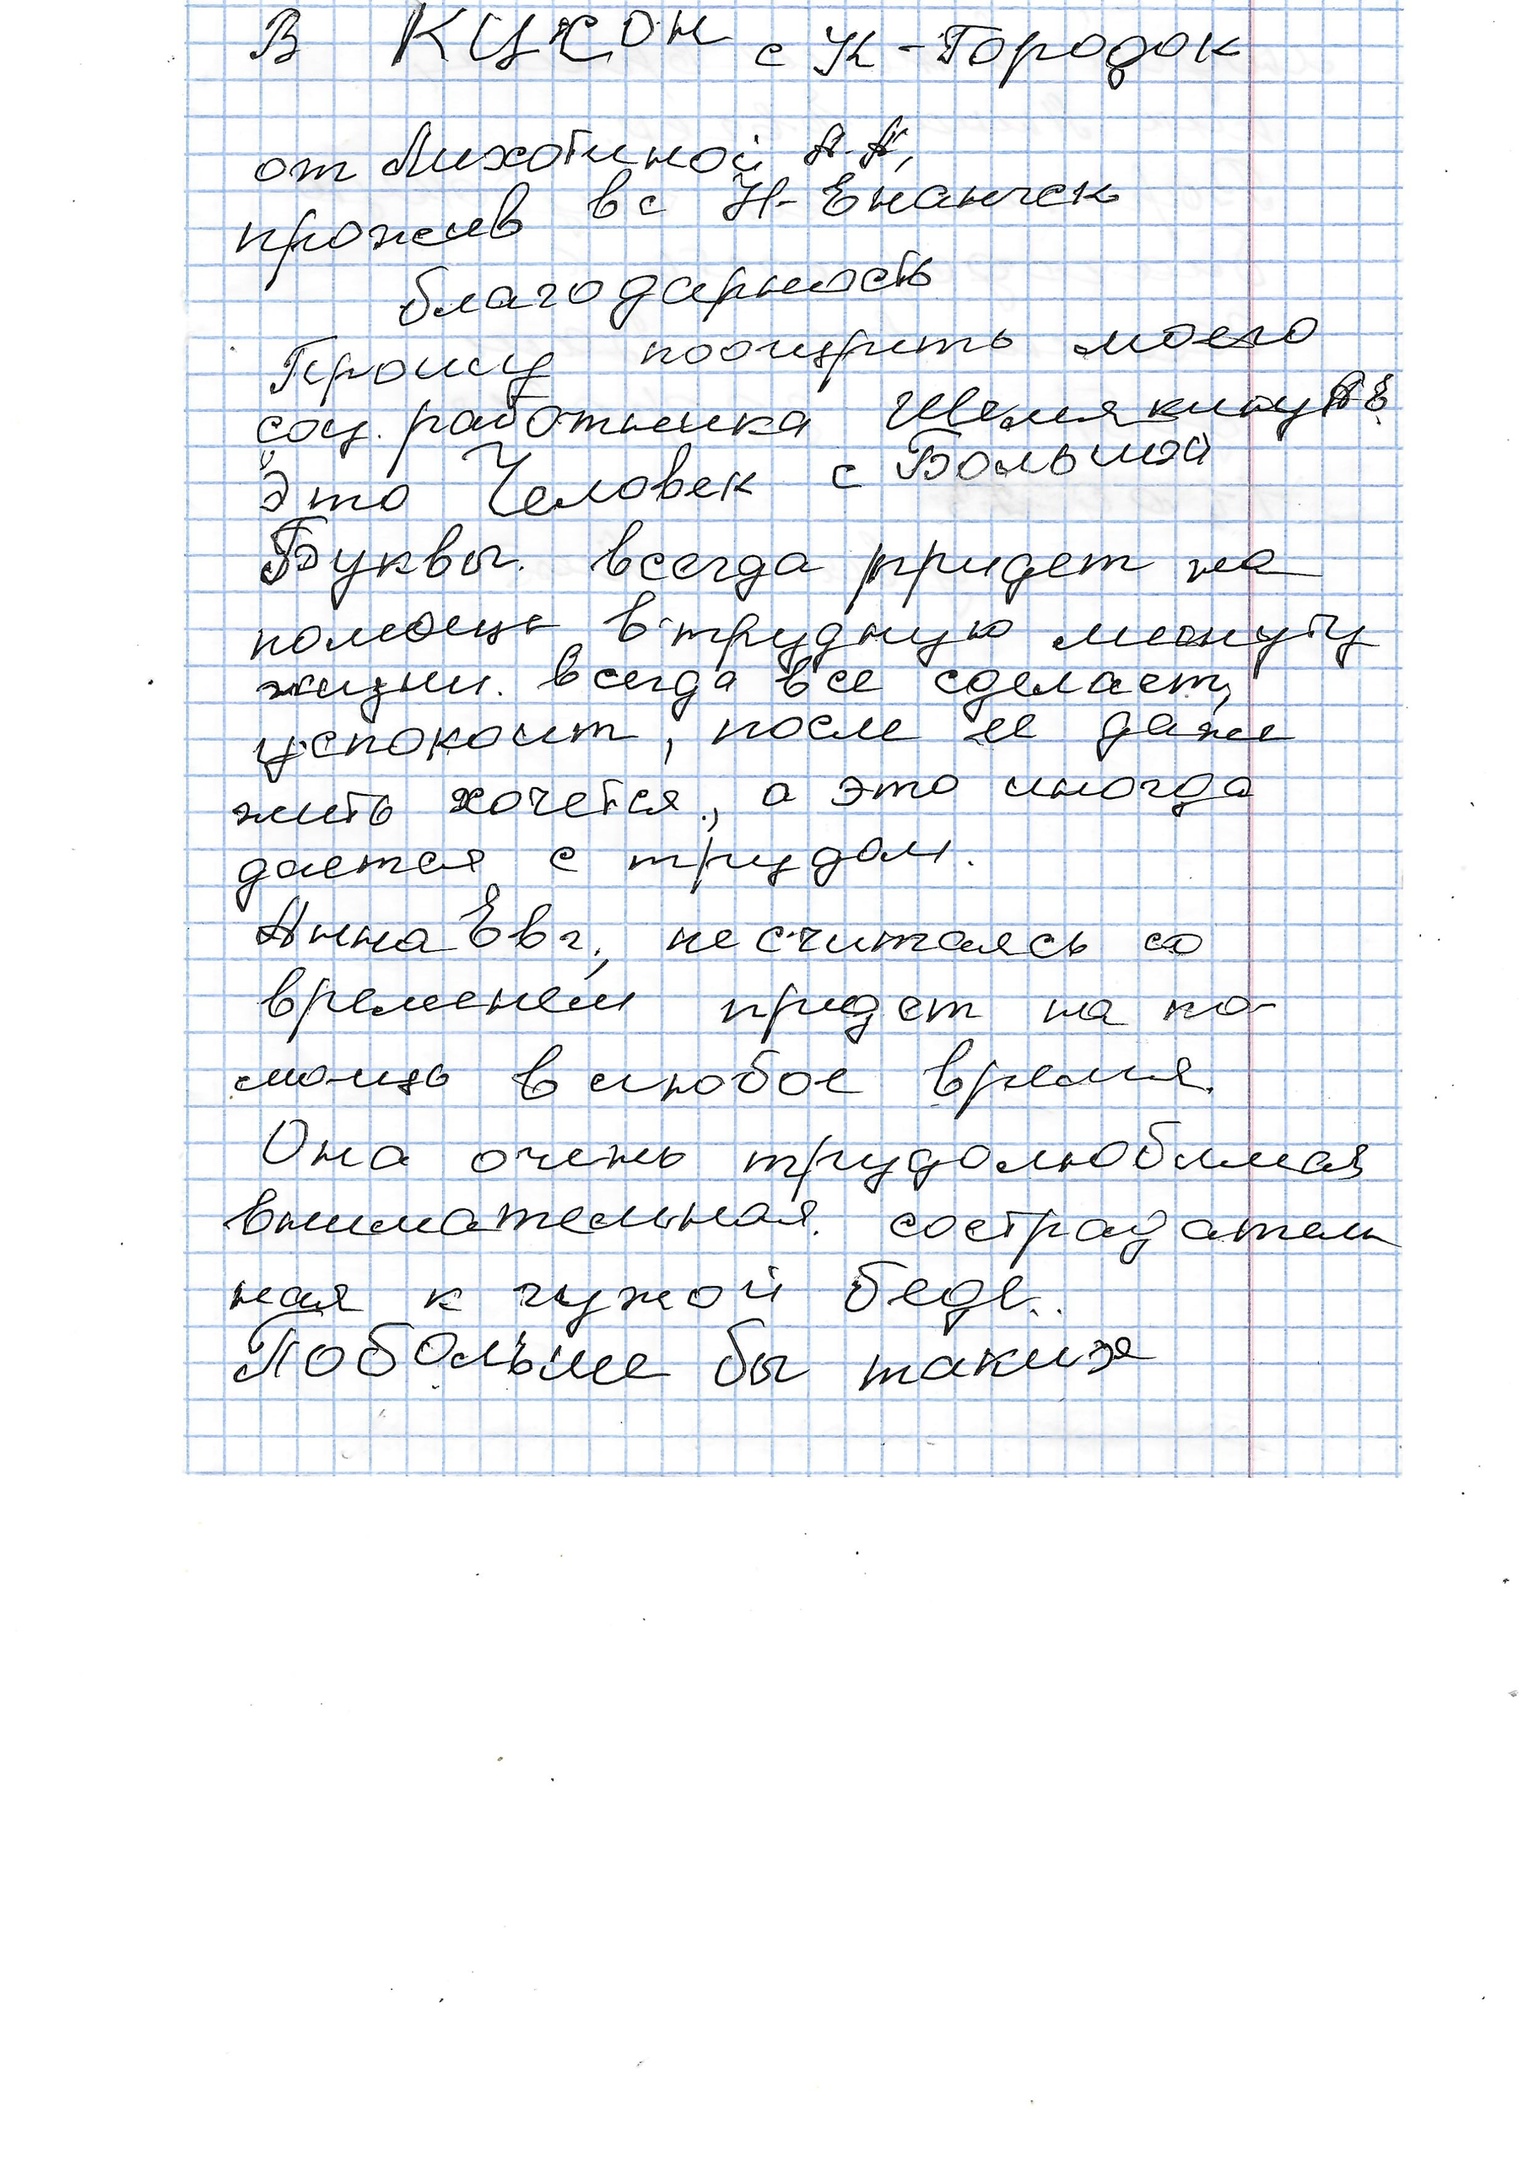 В КЦСОН с К-Городок
от Лихотиной А.А,
прожив в с Н-Енангск
благодарность
Прошу поощрить моего
соц. работника Шемякину А Е.
Это Человек с Большой
Буквы. всегда придет на
помощь в трудную минуту
жизни. всегда все сделает,
успокоит, после ее даже
жить хочется, а это иногда
дается с трудом.
Анна Евг., не считаясь со
временем придет на по-
мощь в любое время.
Она очень трудолюбимая
внимательная. сострадатель
ная к чужой беде..
Побольше бы таких